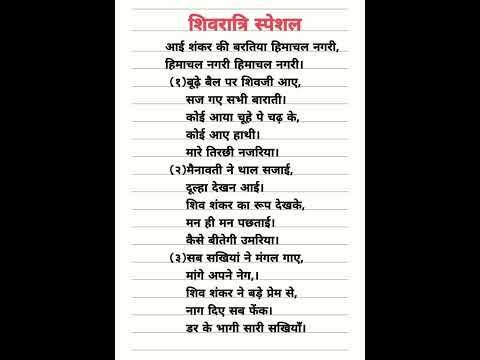 शिवरात्रि स्पेशल
आई शंकर की बरतिया हिमाचल नगरी,
हिमाचल नगरी हिमाचल नगरी।
(१)बूढ़े बैल पर शिवजी आए,
सज गए सभी बाराती।
कोई आया चूहे पे चढ़ के,
कोई आए हाथी।
मारे तिरछी नजरिया।
(२)मैनावती ने थाल सजाई,
दूल्हा देखन आई।
शिव शंकर का रूप देखके,
मन ही मन पछताई।
कैसे बीतेगी उमरिया।
(३)सब सखियां ने मंगल गाए,
मांगे अपने नेग,।
शिव शंकर ने बड़े प्रेम से,
नाग दिए सब फेंक।
डर के भागी सारी सखियाँ।